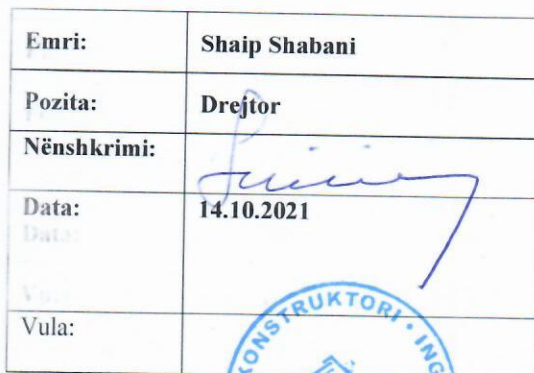 Emri: Shaip Shabani
Pozita: Drejtor
Nënshkrimi:
Data: 14.10.2021
Data:
Vula:
KONSTRUKTORI • ING